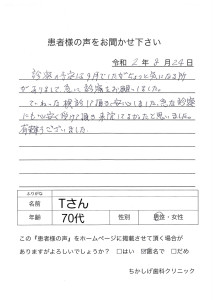 患者様の声をお聞かせ下さい
令和 2年 8月 24日
診療の予定は9月でしたがちょっと気になる所
がありまして急に診療をお願いしました。
ていねいな検診に頂き安心しました。急な診療
にも心安く受けて頂き来院してよかったと思いました。
有難うございました。
ふりがな
名前 Tさん
年齢 70代 性別 男性・女性
この『患者様の声』をホームページに掲載させて頂く場合が
ありますがよろしいでしょうか? □はい ☑匿名で □だめ
ちかしげ歯科クリニック